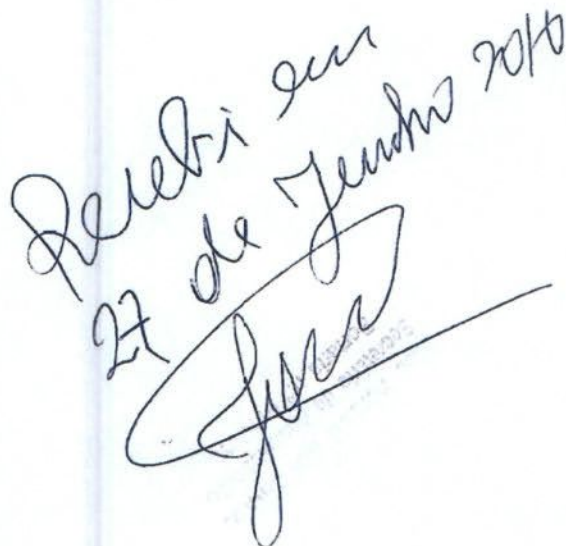 Recebi em
27 de Junho 2010